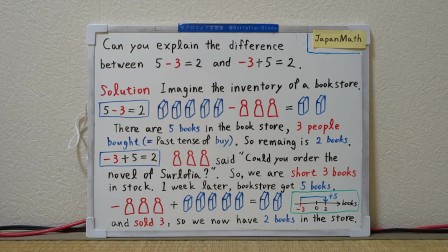 JapanMath
Can you explain the difference
between 5-3=2 and -3+5=2.
Solution Imagine the inventory of a bookstore.
5-3=2 - =
There are 5 books in the book store, 3 people
bought (= Past tense of buy). So remaing is 2 books.
-3+5=2 said "Could you order the
novel of Surlofia?". So, we are short 3 books
in stock. 1 week later, bookstore got 5 books,
- + =
-3 0 2 +5 books
and sold 3, so we now have 2 books in the store.